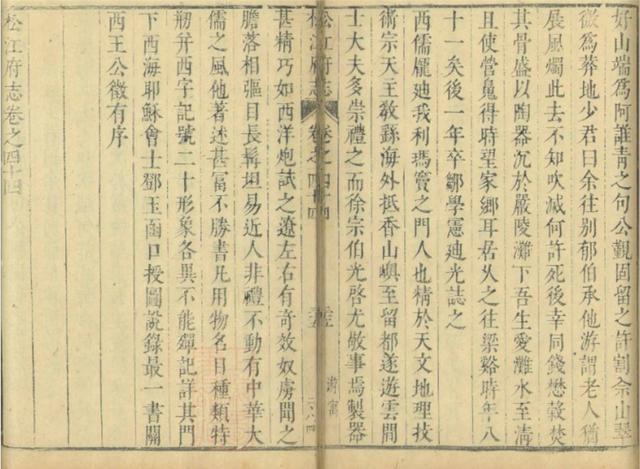 好山端為阿誰青之句公觀固留之許割佘山翠
微為葬地少君曰余往別郁伯承他游謂老人猶
展風燭此去不知吹滅何許死後幸同錢懋穀焚
其骨盛以陶器沉於嚴陵灘下吾生愛灘水至清
且使營䰟得時望家鄉耳居乆之往梁谿時年八
十一矣後一年卒鄒學憲廸光誌之
西儒龎迪我利瑪竇之門人也精於天文地理技
術宗天主敎蘇海外抵香山嶼至留都遂遊雲間
士大夫多崇禮之而徐宗伯光啓尤敬事焉製器
松江府志 卷之四十四
甚精巧如西洋炮試之遼左右有奇效奴虜聞之
膽落相驅目長鞟坦易近人非禮不動有中華大
儒之風他著述甚冨不勝書凡用物名目種類特
剏并西字記號二十形象各異不能殫記詳其門
下西海耶穌會士鄧玉函口授圖說錄最一書關
西王公徵有序
松江府志卷之四十四